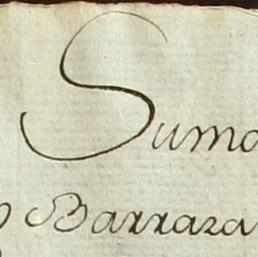 Suma
Barraza